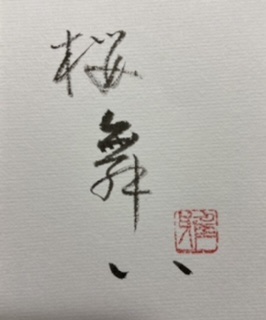 桜舞い